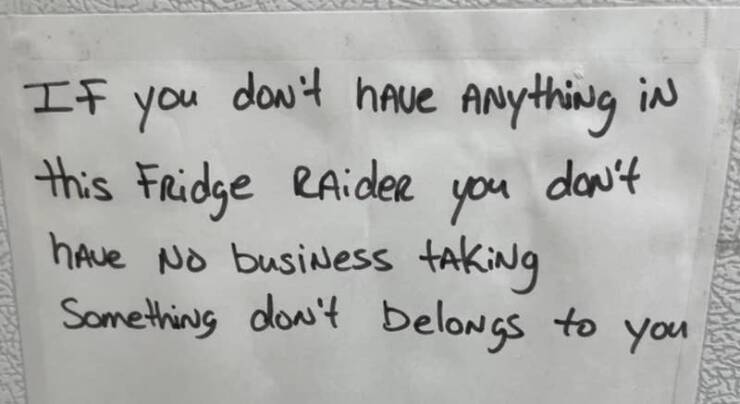 If you don't have anything in
this Fridge Raider you don't
have no business taking
Something don't belongs to you